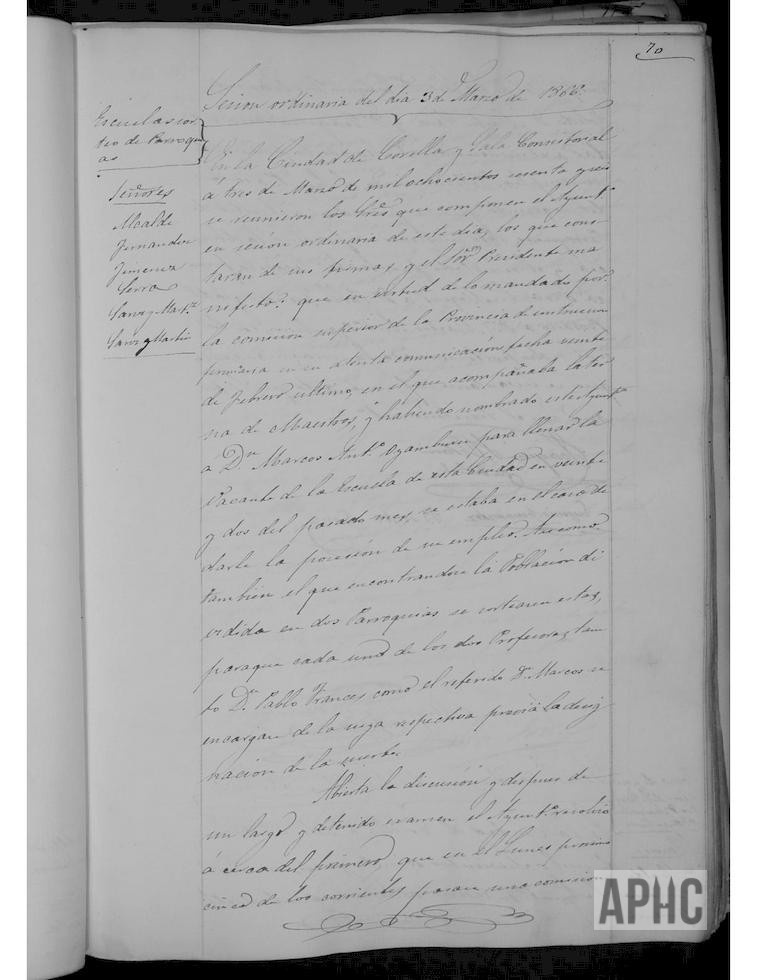 70
Sesion ordinaria del dia 3 de Marzo de 1866.
Escuelas sor
teo de Parroqui
as
Señores
Alcalde
Fernandez
Jimenez
Serra
Sanz y Mart.z
Sanz y Martin
En la Ciudad de Corella y Sala Consistorial
á tres de Marzo de mil ochocientos sesenta y seis
se reunieron los Sres que componen el Ayunt.o
en sesion ordinaria de este dia, los que cons-
taran de sus firmas, y el Sor Presidente ma
nifestó: que en virtud de lo mandado por
la comision superior de la Provincia de instruccion
primaria en su atenta comunicación fecha veinte
de Febrero ultimo, en el que acompañaba la ter
na de Maestros, y habiendo nombrado este Ayunt.o
a Dn Marcos Ant.o para llenar la
Vacante de la Escuela de esta Ciudad en veinte
y dos del pasado mes, se estaba en el caso de
darle la posesión de su empleo. Asi como
tambien el que encontrandose la Población di
vidida en dos Parroquias se sorteasen estas,
para que cada uno de los dos Profesores, tan
to Dn Pablo Frances como el referido Dn Marcos se
encargue de la suya respectiva previa la desig
nacion de la suerte.
Abierta la discusión y despues de
un largo y detenido examen el Ayunt.o resolvió
á cerca del primero, que en el Lunes proximo
cinco de los corrientes pasase una comision
APHC